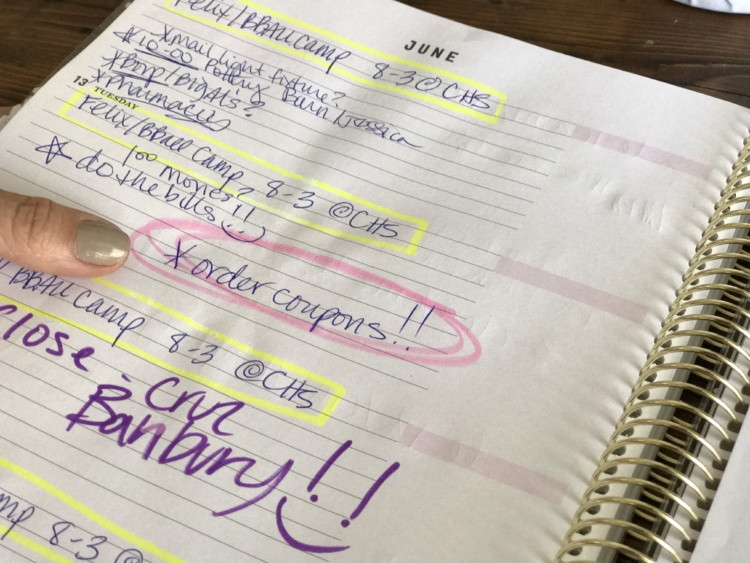 JUNE
Felix/BBall Camp 8-3 @ CHS
Xmail light fixture?
*10:00 Pottery Barn/Jessica
*Pharmacies
13 TUESDAY
Felix/BBall Camp 8-3 @CHS
100 money?
* do the bills!!
*order coupons!!
/BBall Camp 8-3 @CHS
close - Cruz
Banbury!!
mp 8-3 @